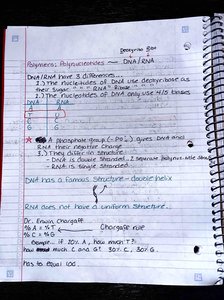 Deoxyribo Box
Polymers; Polynucleotides ~ DNA/RNA
DNA/RNA have 3 differences...
1.) The nucleotides of DNA use deoxyribose as
their sugar. " " RNA " Ribose " "
2.) The nucleotides of DNA only use 4/5 bases
DNA RNA
A A
T U
C C
G G
A phosphate group (-PO4) gives DNA and
RNA their negative charge
3.) They differ in structure.
- DNA is double stranded, 2 separate polynucleotide
- RNA is single stranded.
DNA has a famous structure - double helix
RNA does not have a uniform structure.
Dr. Erwin Chargaff
% A = % T Chargaffs rule
% C = % G
if 20% A, how much T?
how much C and G? 30% C, 30% G
has to equal 100.